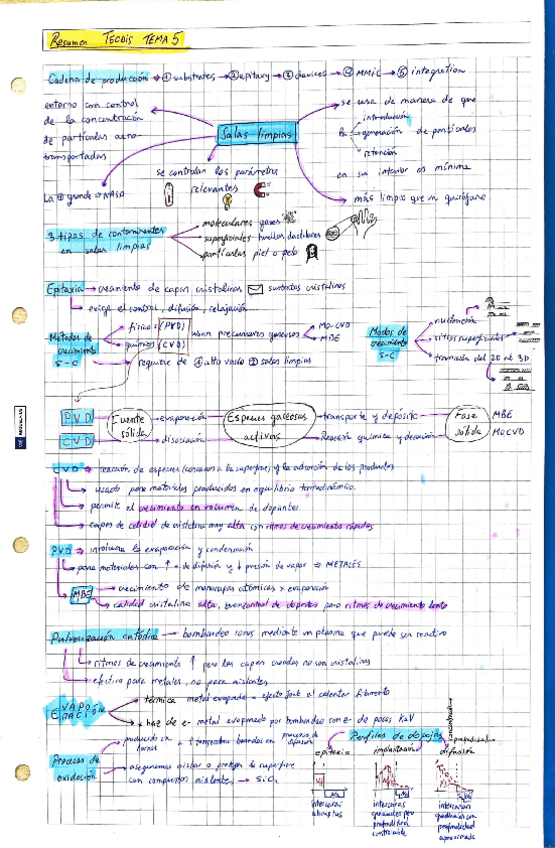 Resumen TECDIS TEMA 5
Cadena de producción → ① substrates → ② epitaxy → ③ devices → ④ MMIC → ⑤ integration
entorno con control
de la concentración
de partículas aero-
transportadas
La ⊕ grande → NASA
Salas limpias
se controlan los parámetros
relevantes
se usa de manera de que
la
introducción
generación de partículas
retención
en su interior es mínima
más limpio que un quirófano
3 tipos de contaminantes
en salas limpias
moleculares gases
superficiales huellas dactilares
partículas piel o pelo
Epitaxia → crecimiento de capas cristalinas sustratos cristalinos
exige el control, difusión, relajación
Métodos de
crecimiento
S-C
físicos (PVD)
químicos (CVD)
usan precursores gaseosos
MOCVD
MBE
requiere de ① alto vacío ② salas limpias
Modos de
crecimiento
S-C
nucleación
sitios superficiales
transición del 2D al 3D
PVD
CVD
Fuente
sólida
evaporación
disociación
Especies gaseosas
activas
transporte y depósito
Reacción química y
Fase
sólida
MBE
MOCVD
CVD → reacción de especies cercanas a la superficie y la adsorción de los productos
usado para materiales producidos en equilibrio termodinámico
permite el crecimiento en volumen de dopantes
capas de calidad de cristalina muy alta con ritmos de crecimiento rápidos
PVD → involucra la evaporación y condensación
para materiales con ↑ de difusión y ↓ presión de vapor ⇒ METALES
MBE
crecimiento de monocapas atómicas x evaporación
calidad cristalina alta, buen control de depósitos pero ritmos de crecimiento lento
Pulverización catódica → bombardeo iones mediante un plasma que puede ser reactivo
ritmos de crecimiento ↑ pero las capas creadas no son cristalinas
efectivo para metales, no para aislantes
EVAPORACIÓN
térmica metal evaporado x efecto Joule al calentar filamento
x haz de e- metal evaporado por bombardeo con e- de pocos KeV
Procesos de
oxidación
producido en
hornos
a ↑ temperatura basados en procesos de
difusión
aseguramos aislar o proteger la superficie
con compuestos aislantes → SiO₂
Perfiles de dopajes
epitaxia
implantación
difusión
concentración
profundidad
intercaras
abruptas
intercaras
graduales por
profundidad
controlable
intercaras
graduales con
profundidad
aproximada